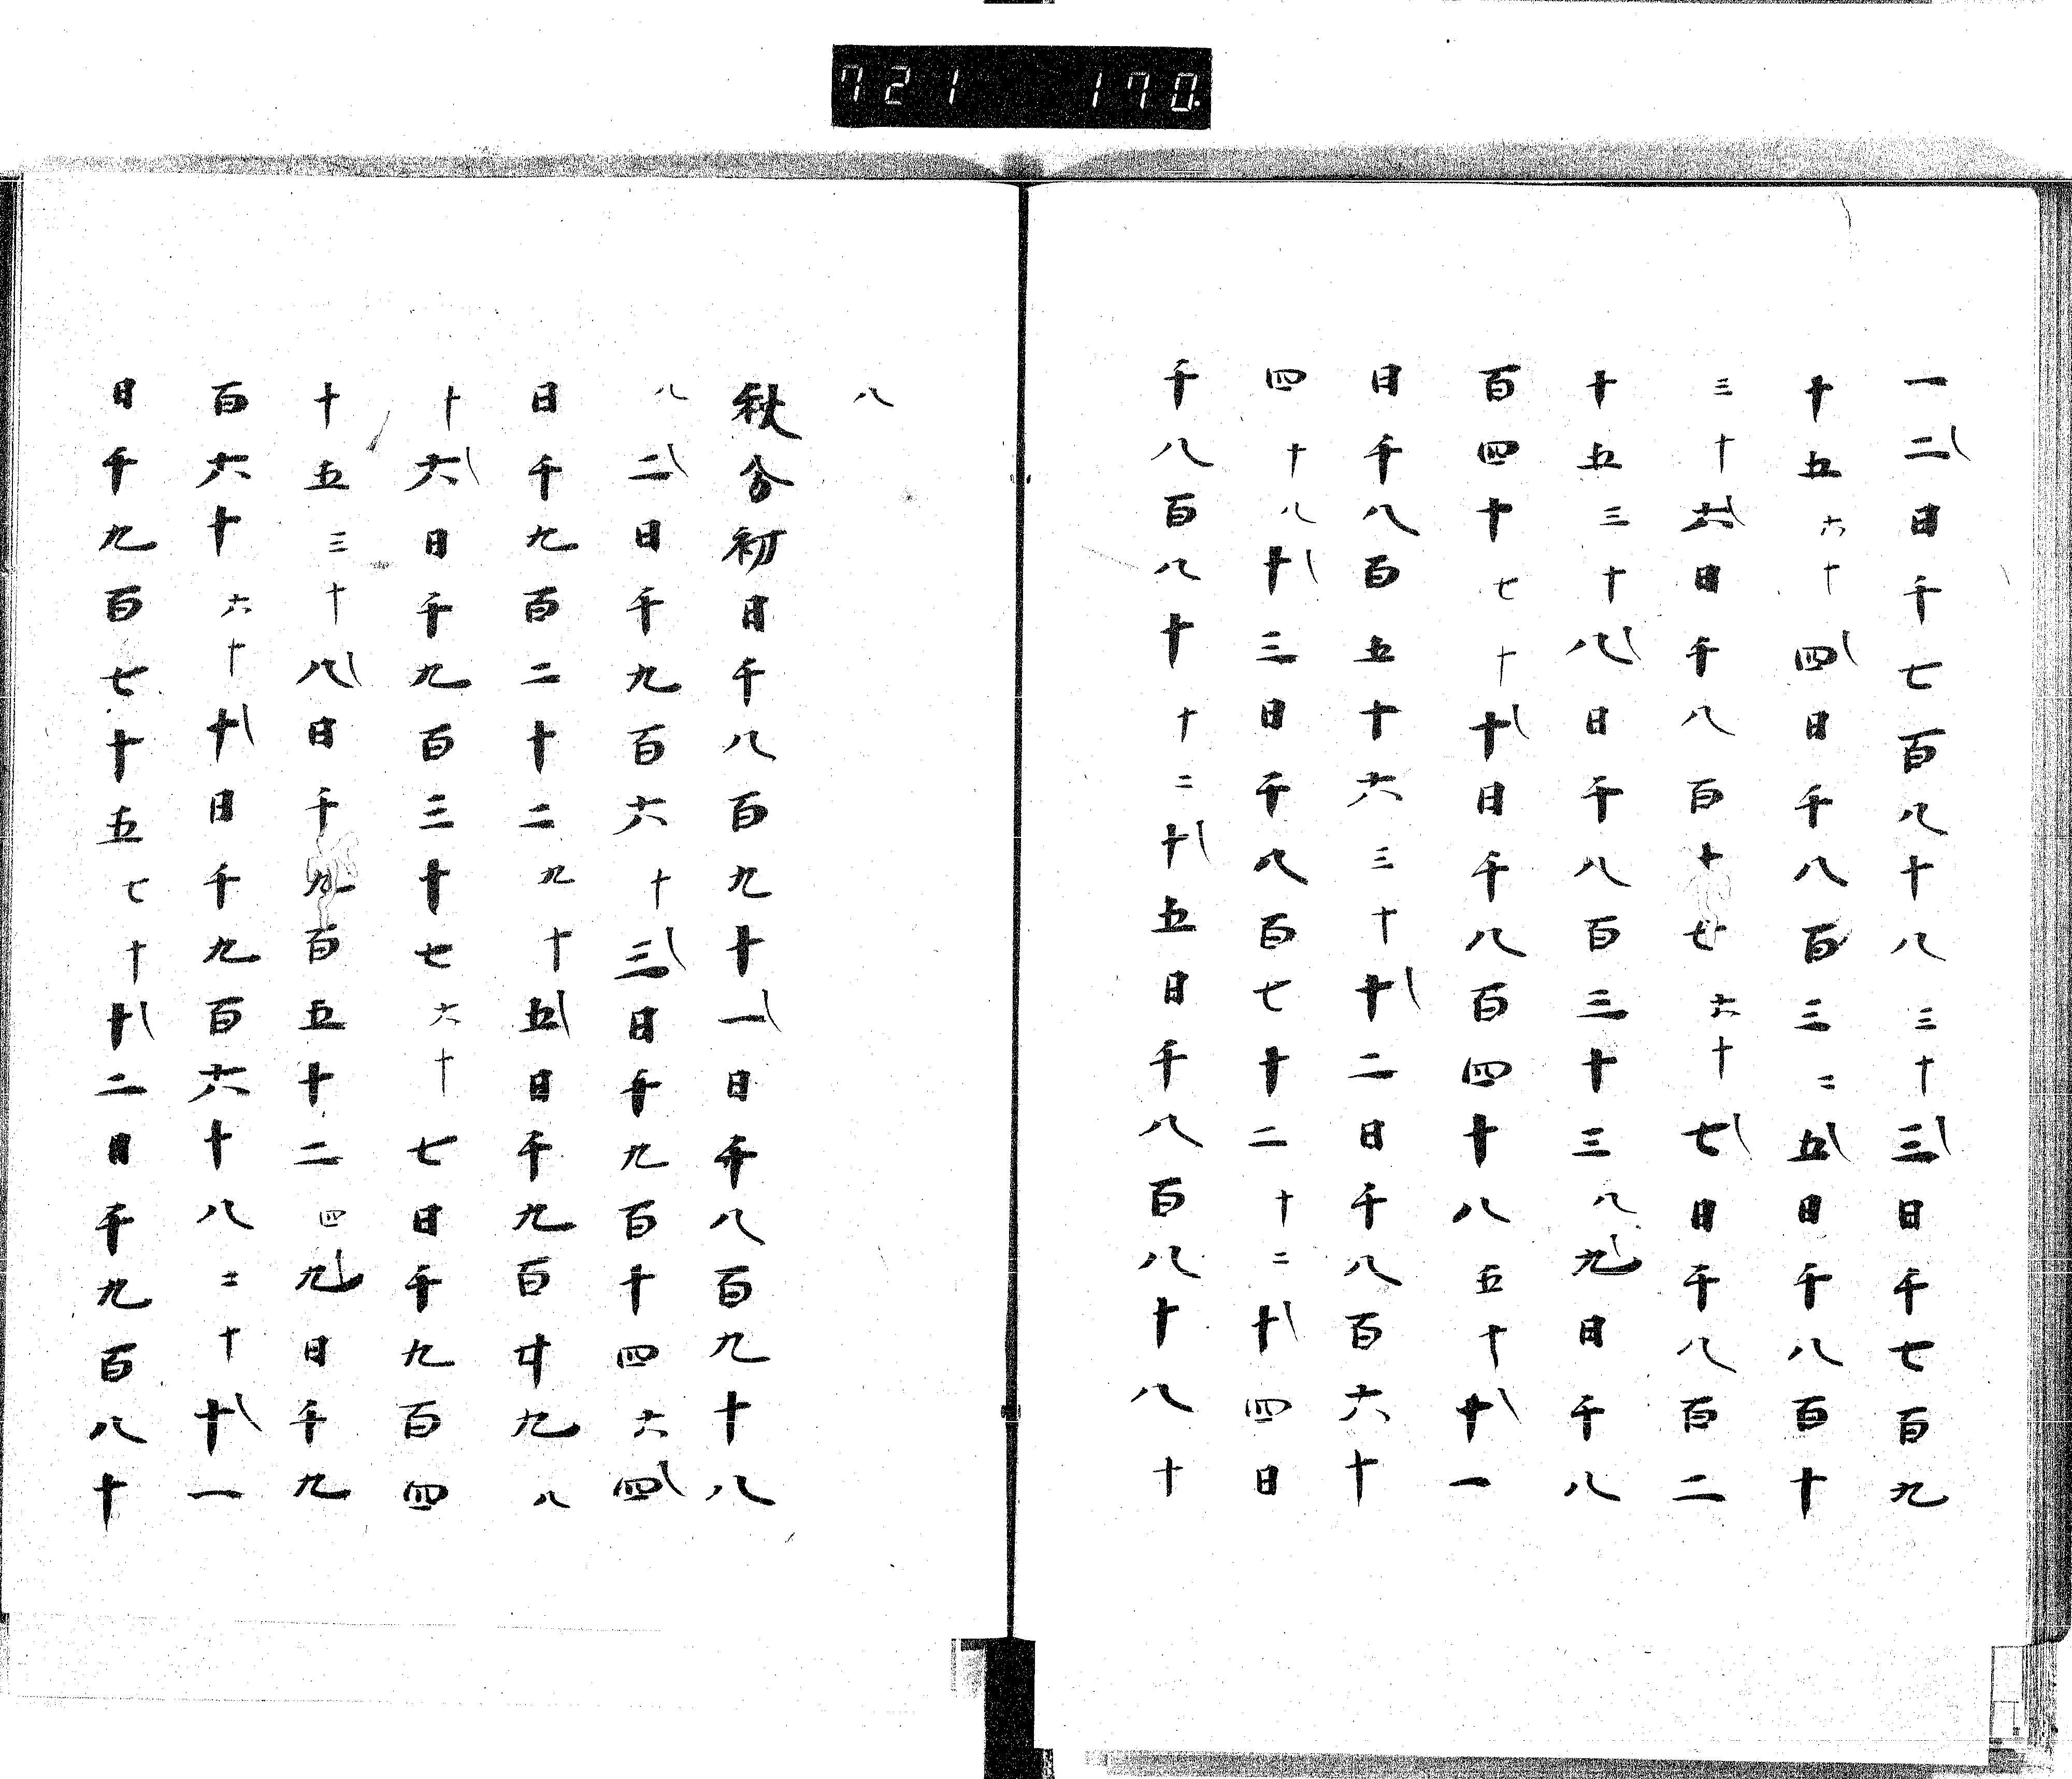 721 170.
一二日千七百八十八三十三日千七百九
十五六十四日千八百三二五日千八百十
三十六日千八百十廿六十七日千八百二
十五三十八日千八百三十三八九日千八
百四十七十十日千八百四十八五十十一
日千八百五十六三十十二日千八百六十
四十八十三日千八百七十二十二十四日
千八百八十十二十五日千八百八十八十
八
秋分初日千八百九十一日千八百九十八
八二日千九百六十三日千九百十四六四
日千九百二十二九十五日千九百廿九八
十六日千九百三十七六十七日千九百四
十五三十八日千九百五十二四九日千九
百六十六十十日千九百六十八二十十一
日千九百七十五七十十二日千九百八十